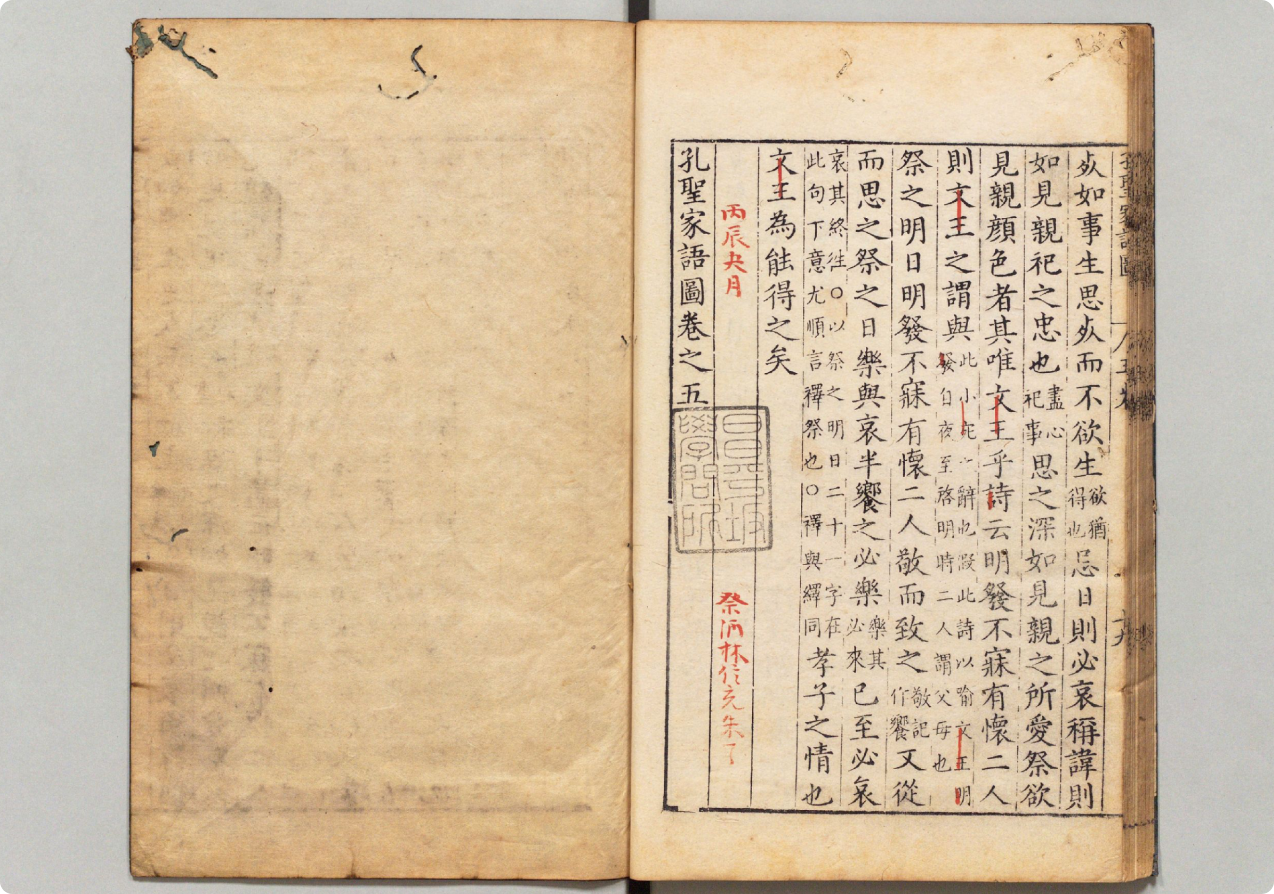 孔聖家語圖 五卷
死如事生思死而不欲生欲猶得也忌日則必哀稱諱則
如見親祀之忠也盡心祀事思之深如見親之所愛祭欲
見親顔色者其唯文王乎詩云明發不寐有懷二人
則文王之謂與此小宛之辭也假此詩以喻文王明發自夜至啓明時二人謂父母也
祭之明日明發不寐有懷二人敬而致之敬記作饗又從
而思之祭之日樂與哀半饗之必樂樂其必來已至必哀
哀其終徃○以祭之明日二十一字在此句丁意尤順言禫祭也○禫與繹同孝子之情也
文王為能得之矣
丙辰夬月
祭酒林信充朱了
孔聖家語圖卷之五
昌平坂
學問所